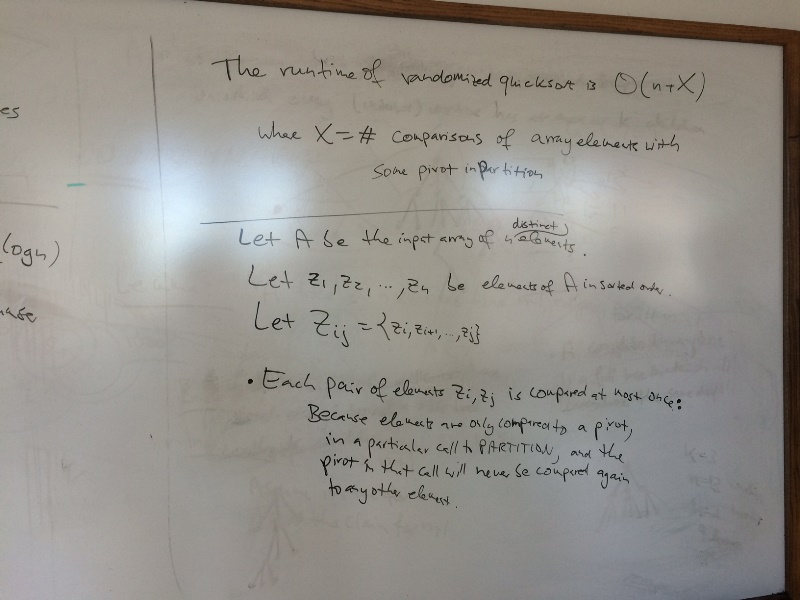 es
(logn)
ase
The runtime of randomized quicksort is O(n+X)
where X = # comparisons of array elements with
some pivot in Partition
Let A be the input array of n distinct elements.
Let z1, z2, ..., zn be elements of A in sorted order.
Let Zij = {zi, zi+1, ..., zj}
• Each pair of elements zi, zj is compared at most once:
Because elements are only compared to a pivot,
in a particular call to PARTITION, and the
pivot in that call will never be compared again
to any other element.